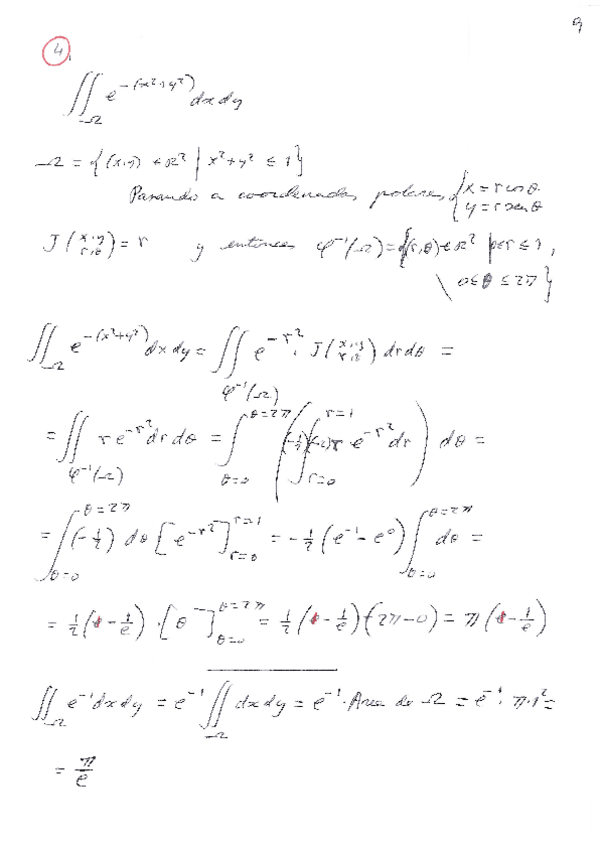 9
4.
∬_Ω e^{-(x²+y²)} dx dy
Ω = {(x,y) ∈ R² | x²+y² ≤ 1}
Pasando a coordenadas polares, { x = r cos θ
y = r sen θ
J(x,y / r,θ) = r y entonces φ⁻¹(Ω) = {(r,θ) ∈ R² | 0≤r≤1,
0≤θ≤2π}
∬_Ω e^{-(x²+y²)} dx dy = ∬_{φ⁻¹(Ω)} e^{-r²} · J(x,y / r,θ) dr dθ =
= ∬_{φ⁻¹(Ω)} r e^{-r²} dr dθ = ∫_{θ=0}^{θ=2π} ( ∫_{r=0}^{r=1} (-½)(-2)r e^{-r²} dr ) dθ =
= ∫_{θ=0}^{θ=2π} (-½) dθ [e^{-r²}]_{r=0}^{r=1} = -½ (e⁻¹ - e⁰) ∫_{θ=0}^{θ=2π} dθ =
= ½ (1 - 1/e) · [θ]_{θ=0}^{θ=2π} = ½ (1 - 1/e) · (2π - 0) = π (1 - 1/e)
∬_Ω e⁻¹ dx dy = e⁻¹ ∬_Ω dx dy = e⁻¹ · Area de Ω = e⁻¹ · π·1² =
= π/e